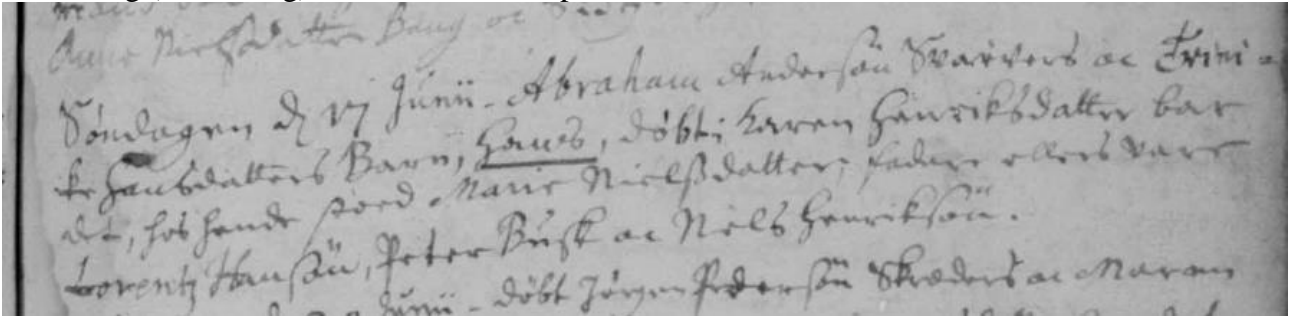 Anne Nielsdatter Bang oc
Søndagen d vj Junii - Abraham Andersøn Svarvers oc Trini=
ke Hansdatters Barn, Hans, døbt; Karen Hanriksdatter bar
det, hos hende stoed Marie Nielsdatter; fadere ellers vare
Lorentz Hansøn, Peter Busk oc Niels Henriksøn.
Junii - døbt Jørgen Pedersøn Skreders oc Maren